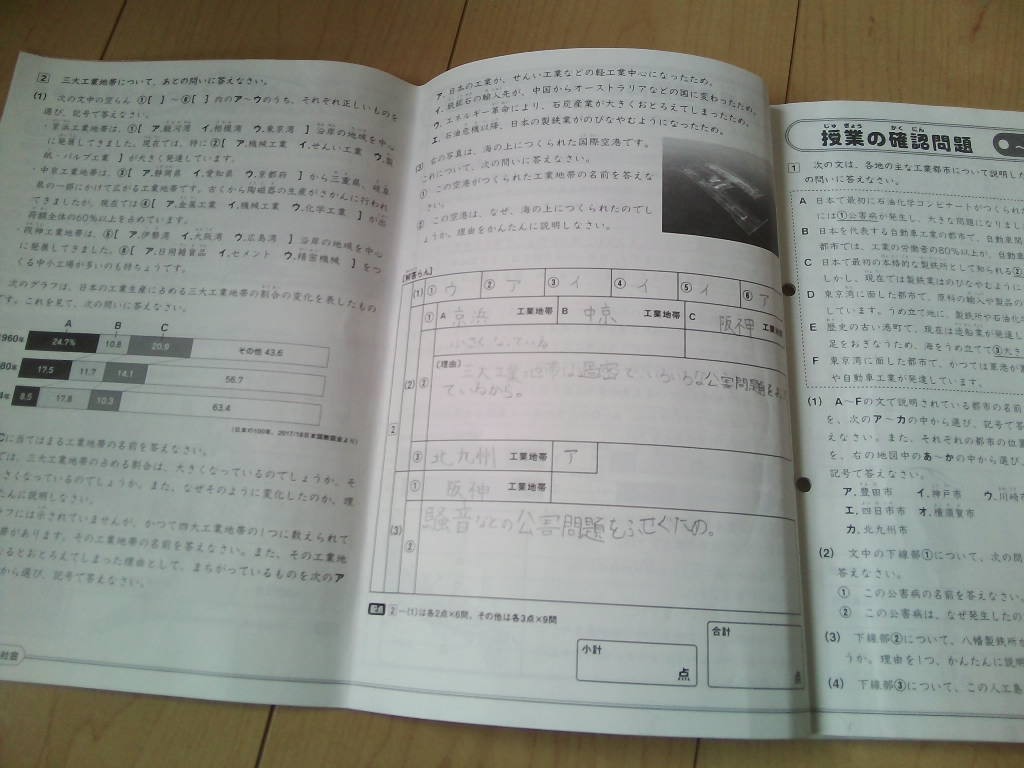 2 三大工業地帯について,あとの問いに答えなさい。
(1) 次の文中の空らん ①[ ]~⑥[ ]内のア~ウのうち,それぞれ正しいものを
選び,記号で答えなさい。
・京浜工業地帯は,①[ ア.駿河湾 イ.相模湾 ウ.東京湾 ]沿岸の地域を中心
に発展してきました。現在では,特に②[ ア.機械工業 イ.せんい工業 ウ.製
紙・パルプ工業 ]が大きく発達しています。
中京工業地帯は,③[ ア.静岡県 イ.愛知県 ウ.京都府 ]から三重県,岐阜
県の一部にかけて広がる工業地帯です。古くから陶磁器の生産がさかんに行われ
てきましたが,現在では④[ ア.金属工業 イ.機械工業 ウ.化学工業 ]が出
荷額全体の60%以上を占めています。
阪神工業地帯は,⑤[ ア.伊勢湾 イ.大阪湾 ウ.広島湾 ]沿岸の地域を中心
に発展してきました。⑥[ ア.日用雑貨品 イ.セメント ウ.精密機械 ]をつ
くる中小工場が多いのも特ちょうです。
次のグラフは,日本の工業生産に占める三大工業地帯の割合の変化を表したもの
です。これを見て,次の問いに答えなさい。
A B C
1960年 24.7% 10.8 20.9 その他 43.6
80年 17.5 11.7 14.1 56.7
4年 8.5 17.8 10.3 63.4
(日本の100年,2017/18日本国勢図会より)
Cに当てはまる工業地帯の名前を答えなさい。
ては,三大工業地帯の占める割合は,大きくなっているのでしょうか,そ
さくなっているのでしょうか,また,なぜそのように変化したのか,理
たんに説明しなさい。
フには示されていませんが,かつて四大工業地帯の1つに数えられて
帯があります。その工業地帯の名前を答えなさい。また,その工業地
るとおとろえてしまった理由として,まちがっているものを次のア
から選び,記号で答えなさい。
社会
ア.日本の工業が,せんい工業などの軽工業中心になったため。
イ.鉄鉱石の輸入先が,中国からオーストラリアなどの国に変わったため。
ウ.エネルギー革命により,石炭産業が大きくおとろえてしまったため。
エ.石油危機以降,日本の製鉄業がのびなやむようになったため。
(3) 右の写真は,海の上につくられた国際空港です。
これについて,次の問いに答えなさい。
① この空港がつくられた工業地帯の名前を答えな
さい。
② この空港は,なぜ,海の上につくられたのでし
ょうか。理由をかんたんに説明しなさい。
[解答らん]
2
(1) ① ウ ② ア ③ イ ④ イ ⑤ イ ⑥ ア
(2) ① A 京浜 工業地帯 B 中京 工業地帯 C 阪神 工業
② 小さくなっている
(理由)
三大工業地帯は過密でいろいろな公害問題を
ているから。
③ 北九州 工業地帯 ア
(3) ① 阪神 工業地帯
② 騒音などの公害問題をふせぐため。
配点 2-(1)は各2点×6問,その他は各3点×9問
小計 点
合計 点
じゅぎょう かくにん
授業の確認問題
1 次の文は,各地の主な工業都市について説明した
の問いに答えなさい。
A 日本で最初に石油化学コンビナートがつくられた
には①公害病が発生し,大きな問題になりまし
B 日本を代表する自動車工業の都市で,自動車関
都市では,工業の労働者の80%以上が,自動車
C 日本で最初の本格的な製鉄所として知られる②
しかし,現在では製鉄業はのびなやむように
D 東京湾に面した都市で,原料の輸入や製品の
しています。うめ立て地に,製鉄所や石油化
E 歴史の古い港町で,現在は造船業が発達し
足をおぎなうため,海をうめ立てて③大き
F 東京湾に面した都市で,かつては軍港が
や自動車工業が発達しています。
(1) A~Fの文で説明されている都市の名前
を,次のア~カの中から選び,記号で答
えなさい。また,それぞれの都市の位置
を,右の地図中のあ~かの中から選び,
記号で答えなさい。
ア.豊田市 イ.神戸市 ウ.川崎市
エ.四日市市 オ.横須賀市
カ.北九州市
(2) 文中の下線部①について,次の問
答えなさい。
① この公害病の名前を答えなさい。
② この公害病は,なぜ発生したの
(3) 下線部②について,八幡製鉄所が
うか。理由を1つ,かんたんに説明
(4) 下線部③について,この人工島